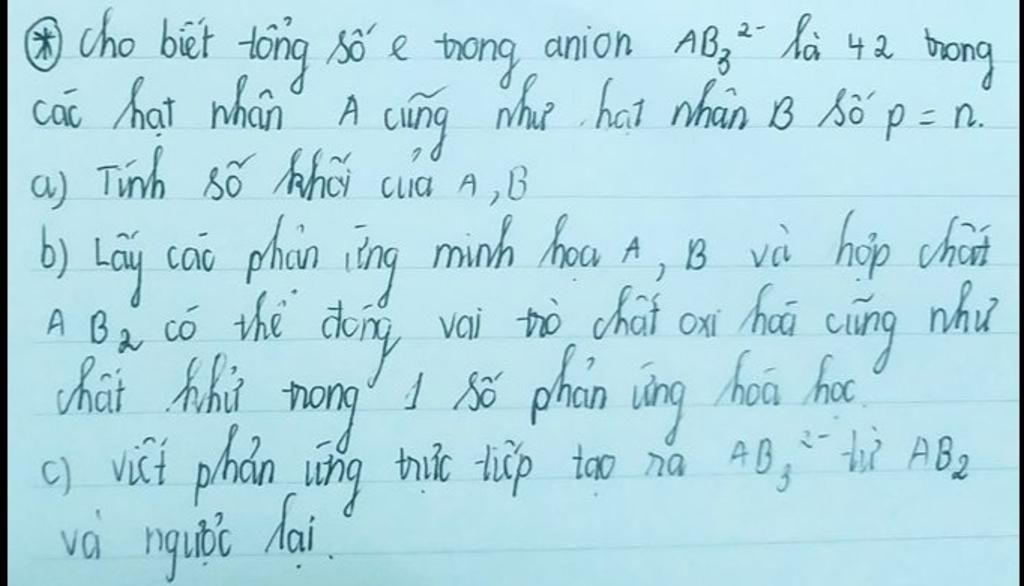 (*) Cho biết tổng số e trong anion AB₃²⁻ là 42 trong
các hạt nhân A cũng như hạt nhân B số p = n.
a) Tính số khối của A, B
b) Lấy các phản ứng minh họa A, B và hợp chất
AB₂ có thể đóng vai trò chất oxi hoá cũng như
chất khử trong 1 số phản ứng hoá học.
c) viết phản ứng trực tiếp tạo ra AB₃²⁻ từ AB₂
và ngược lại.